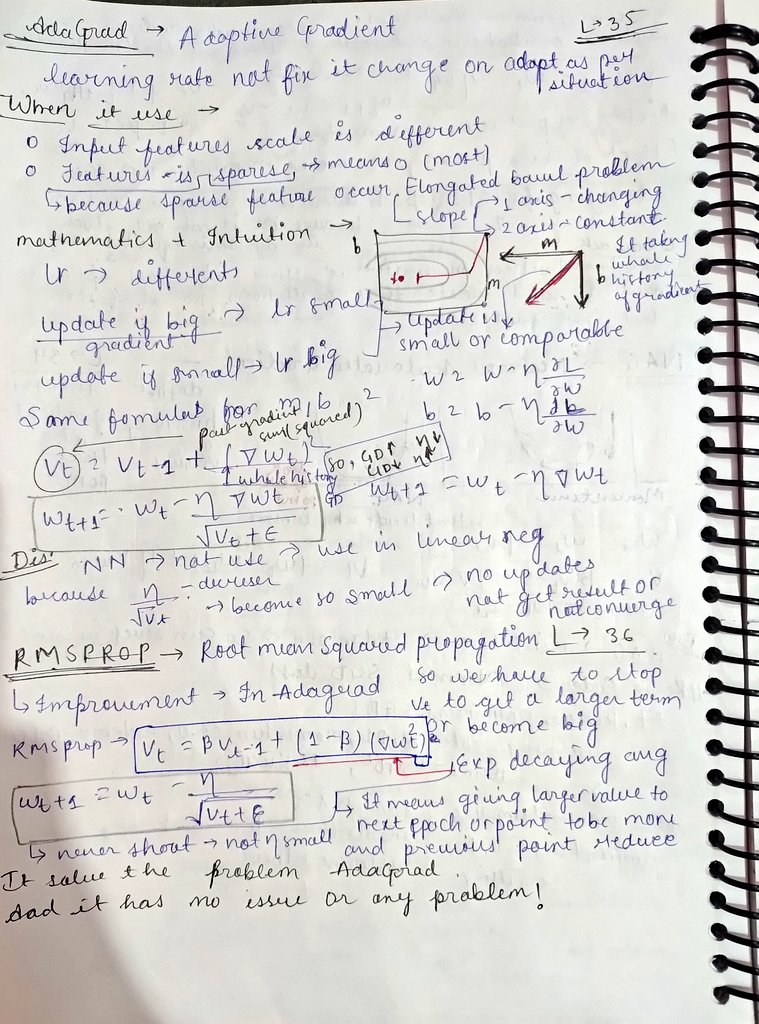 AdaGrad → Adaptive Gradient
L→35
learning rate not fix it change on adapt as per situation
When it use →
o Input features scale is different
o Features is sparese → means 0 (most)
↳ because sparse feature occur Elongated bawl problem
slope
→ 1 axis - changing
→ 2 axis - constant
mathematics + Intuition →
b
m
m
b
It taking whole history of gradient
lr → differents
update if big gradient → lr small
→ update is small or comparable
update if small → lr big
w = w - η ∂L/∂w
Same fomulas for m, b
b = b - η ∂b/∂w
past gradient sum (squared)
Vt = Vt-1 + (∇wt)²
↓ whole history
so, GD↑ η↓
GD↓ η↑
GD wt+1 = wt - η ∇wt
wt+1 = wt - η ∇wt / √Vt + ε
Dis: NN → not use → use in linear reg
because η/√Vt - decreser → become so small → no updates
nat get result or not converge
RMSPROP → Root mean Squared propagation
L→ 36
↳ Improvement → In Adagrad
so we have to stop
Vt to get a larger term
or become big
RMSprop → Vt = βVt-1 + (1-β) (∇wt)²
↓ Exp decaying avg
wt+1 = wt - η / √Vt + ε
→ It means giving larger value to
next epoch or point to be more
and previous point reduce
↳ never shoot → not η small
It solve the problem AdaGrad.
And it has no issue or any problem!